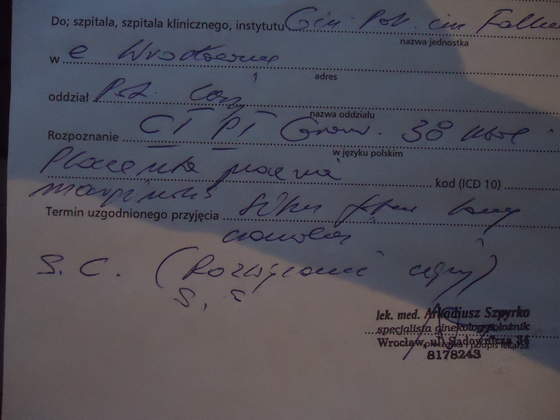 Do; szpitala, szpitala klinicznego, instytutu Gin. Poł. im Falkie
nazwa jednostka
w e Wrocławiu
adres
oddział Pat. Ciąży
nazwa oddziału
Rozpoznanie CI PI Graw.
w języku polskim
Placenta praevia kod (ICD 10)
marginalis
Termin uzgodnionego przyjęcia
S.C. (Rozwiązanie ciąży)
S.C
lek. med. Arkadiusz Szpyrko
specjalista ginekolog-położnik
Wrocław, ul. Sadownicza 34
podpis lekarza
8178243